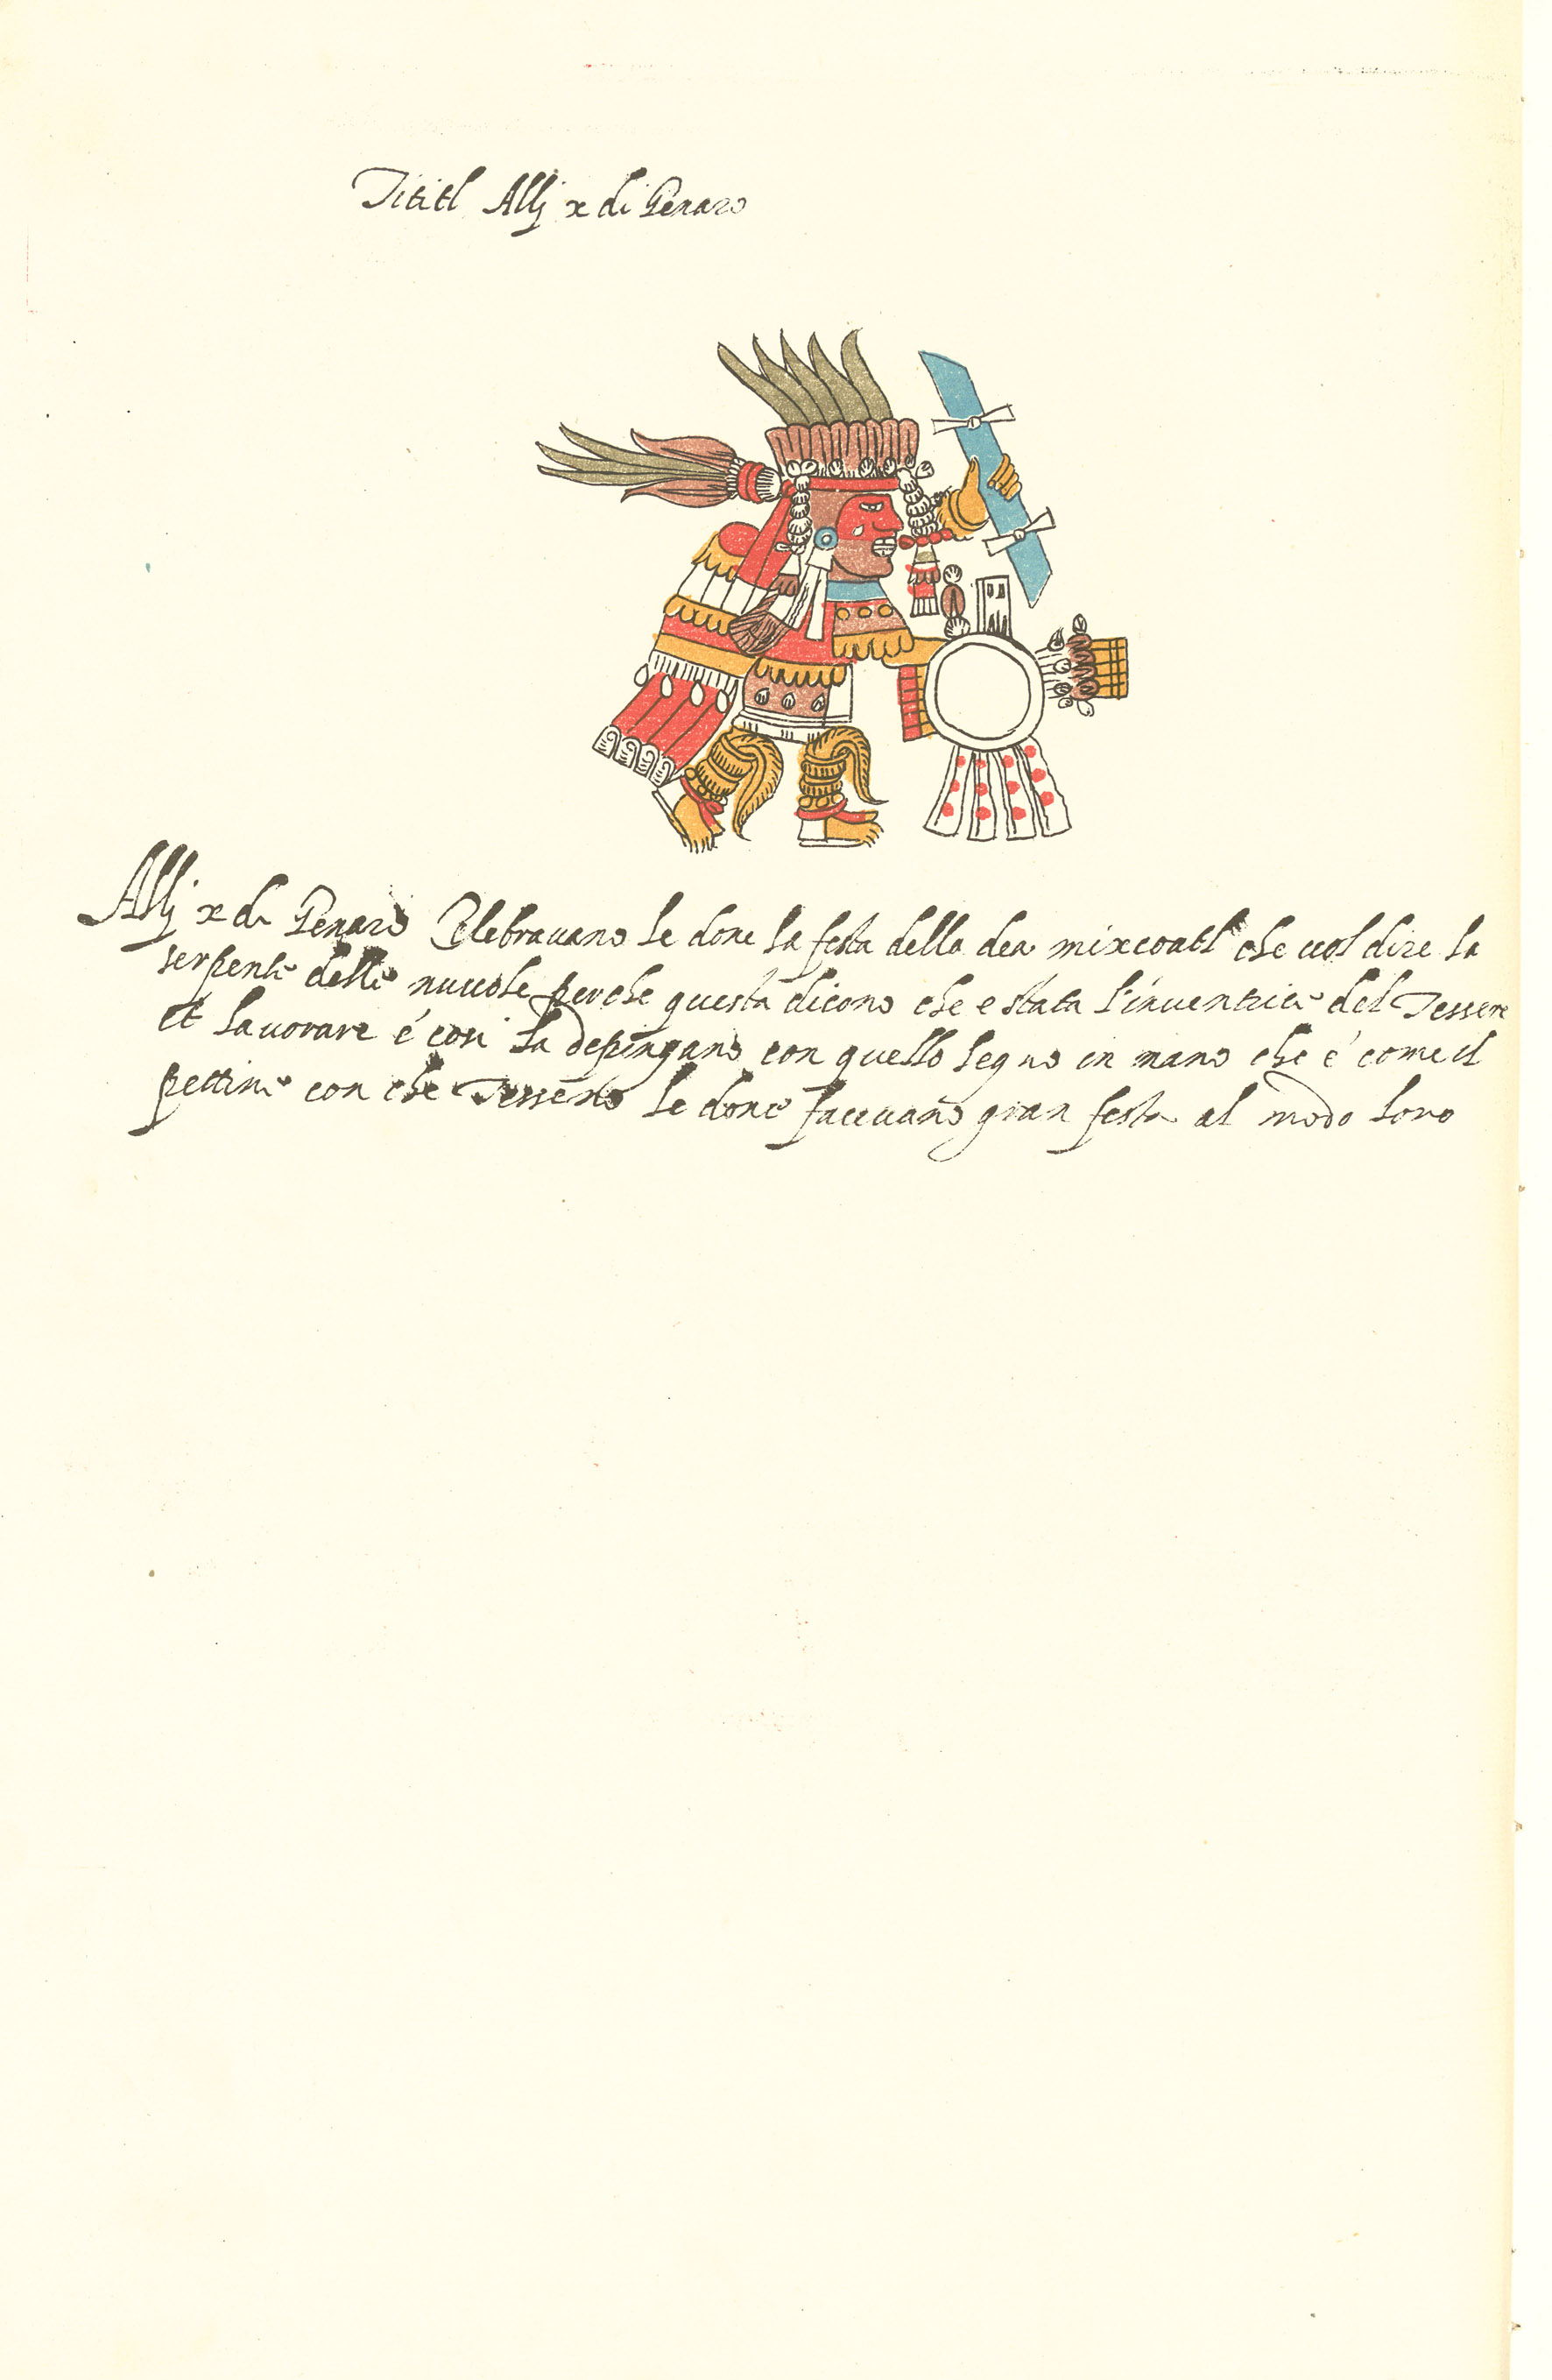 Tititl Alli x di Genaro
Alli x di Genaro Celebravano le done la festa della dea mixcoatl che vol dire la
serpente delle nuvole perche questa dicono che e stata l'inventrice del Tessere
et lavorare é cosi la depingano con quello segno in mano che é come il
pettine con che Tesseno le done facevano gran festa al modo loro